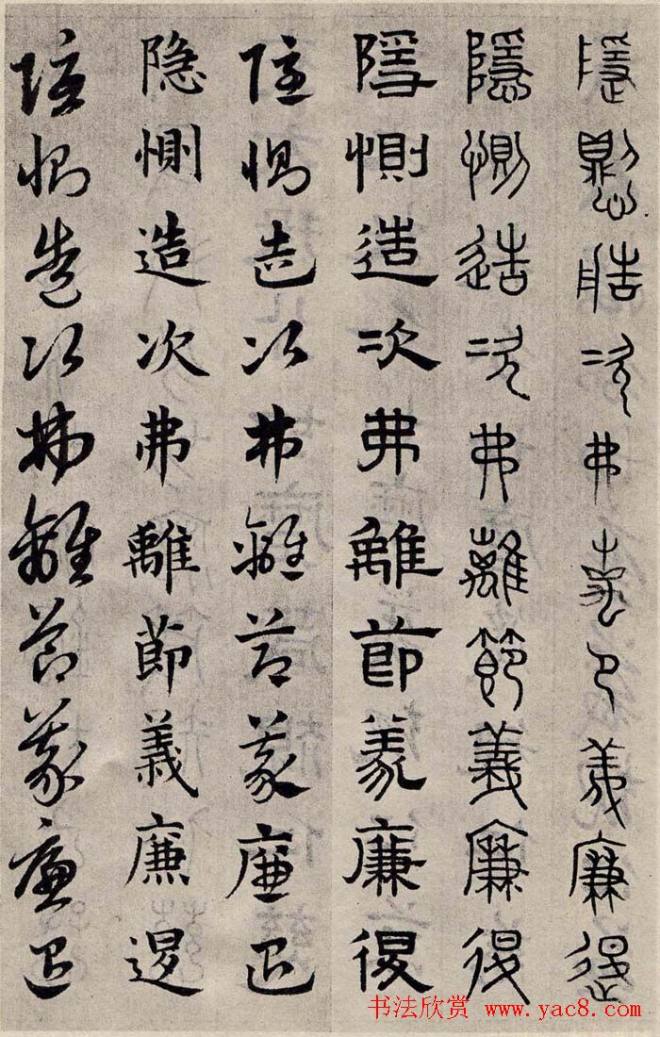 隱惻造次弗離節義廉退
隱惻造次弗離節義廉退
隱惻造次弗離節義廉退
隱惻造次弗離節義廉退
隐惻造次弗離節義廉退
隱惻造次弗離節義廉退
书法欣赏 www.yac8.com